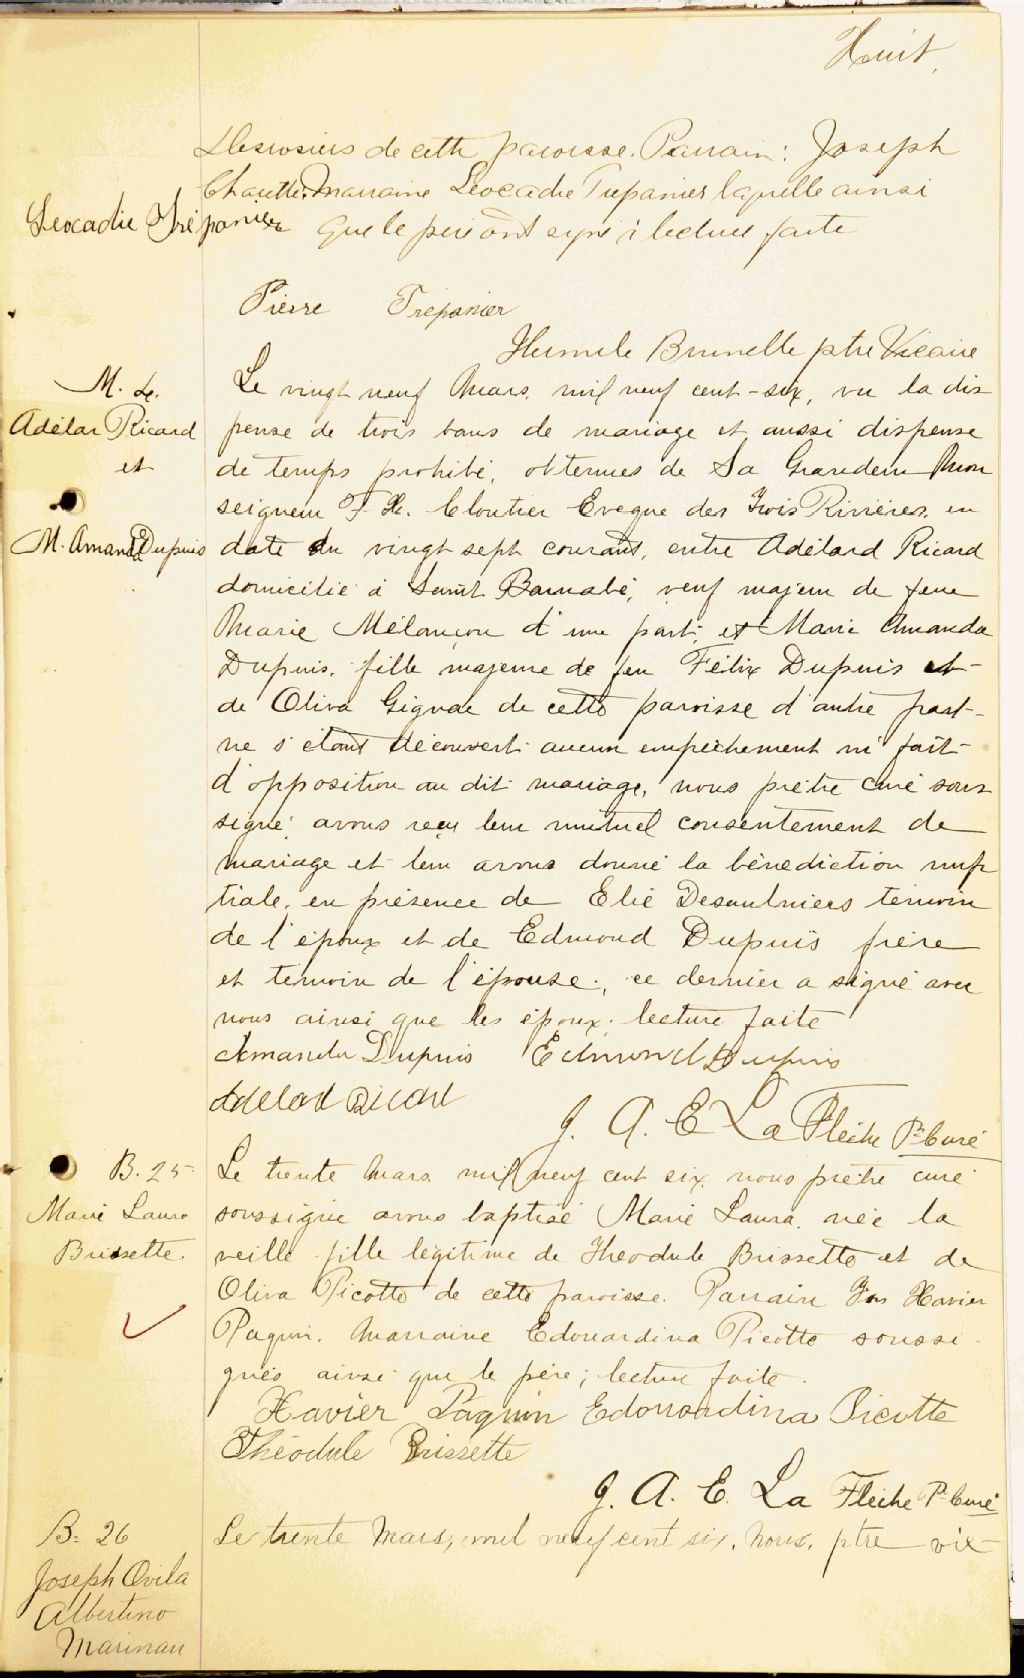 Huit
Desrosiers de cette paroisse. Parrain: Joseph
Charette, Marraine Léocadie Trépanier laquelle ainsi
Léocadie Trépanier
que le père ont signé; lecture faite
Pierre Trépanier
Humile Brunelle ptre Vicaire
M. 4.
Adélar Ricard
et
M. Amanda Dupuis
Le vingt neuf Mars, mil neuf cent-six, vu la dis
pense de trois bans de mariage et aussi dispense
de temps prohibé, obtenues de Sa Grandeur Mon
seigneur F. X. Cloutier Evêque des Trois Rivières, en
date du vingt sept courant, entre Adélard Ricard
domicilié à Saint Barnabé, veuf majeur de feue
Marie Mélançon d'une part, et Marie Amanda
Dupuis, fille majeure de feu Félix Dupuis et
de Oliva Gignac de cette paroisse d'autre part
ne s'étant découvert aucun empêchement ni fait
d'opposition au dit mariage, nous prêtre curé sous
signé, avons reçu leur mutuel consentement de
mariage et leur avons donné la bénédiction nup
tiale, en présence de Elie Desaulniers témoin
de l'époux et de Edmond Dupuis frère
et témoin de l'épouse; ce dernier a signé avec
nous ainsi que les époux; lecture faite
Amanda Dupuis Edmond Dupuis
Adelard Ricard
J. A. E. La Flèche Ptre Curé
B. 25
Marie Laura
Brissette.
Le trente Mars mil neuf cent six, nous prêtre curé
soussigné avons baptisé Marie Laura, née la
veille fille légitime de Théodule Brissette et de
Oliva Picotte de cette paroisse. Parrain Xavier
Paquin, Marraine Edouardina Picotte soussi
gnés ainsi que le père; lecture faite.
Xavier Paquin Edouardina Picotte
Théodule Brissette
J. A. E. La Flèche Ptre Curé
B. 26
Joseph Ovila
Albertino
Marineau
Le trente Mars, mil neuf cent six, nous, ptre vic